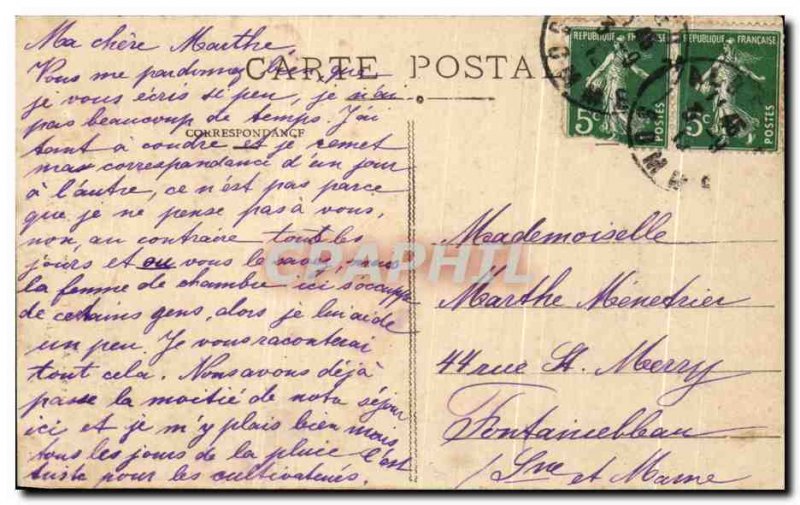 Ma chère Marthe
CARTE POSTALE
Vous me pardonnez bien que
je vous écris si peu, je n'ai
pas beaucoup de temps. J'ai
CORRESPONDANCE
tant à coudre et je remet
ma correspondance d'un jour
à l'autre, ce n'est pas parce
que je ne pense pas à vous,
non, au contraire tout les
jours et ou vous le savez, mais
la femme de chambre ici s'occupe
de certains gens, alors je lui aide
un peu. Je vous raconterai
tout cela. Nous avons déjà
passe la moitié de notre séjour
ici et je m'y plais bien mais
tous les jours de la pluie c'est
triste pour les cultivateurs.
REPUBLIQUE FRANÇAISE
5c
POSTES
REPUBLIQUE FRANÇAISE
5c
POSTES
Mademoiselle
Marthe Ménetrier
44 rue St. Merry
Fontainebleau
Sne et Marne
CPAPHIL